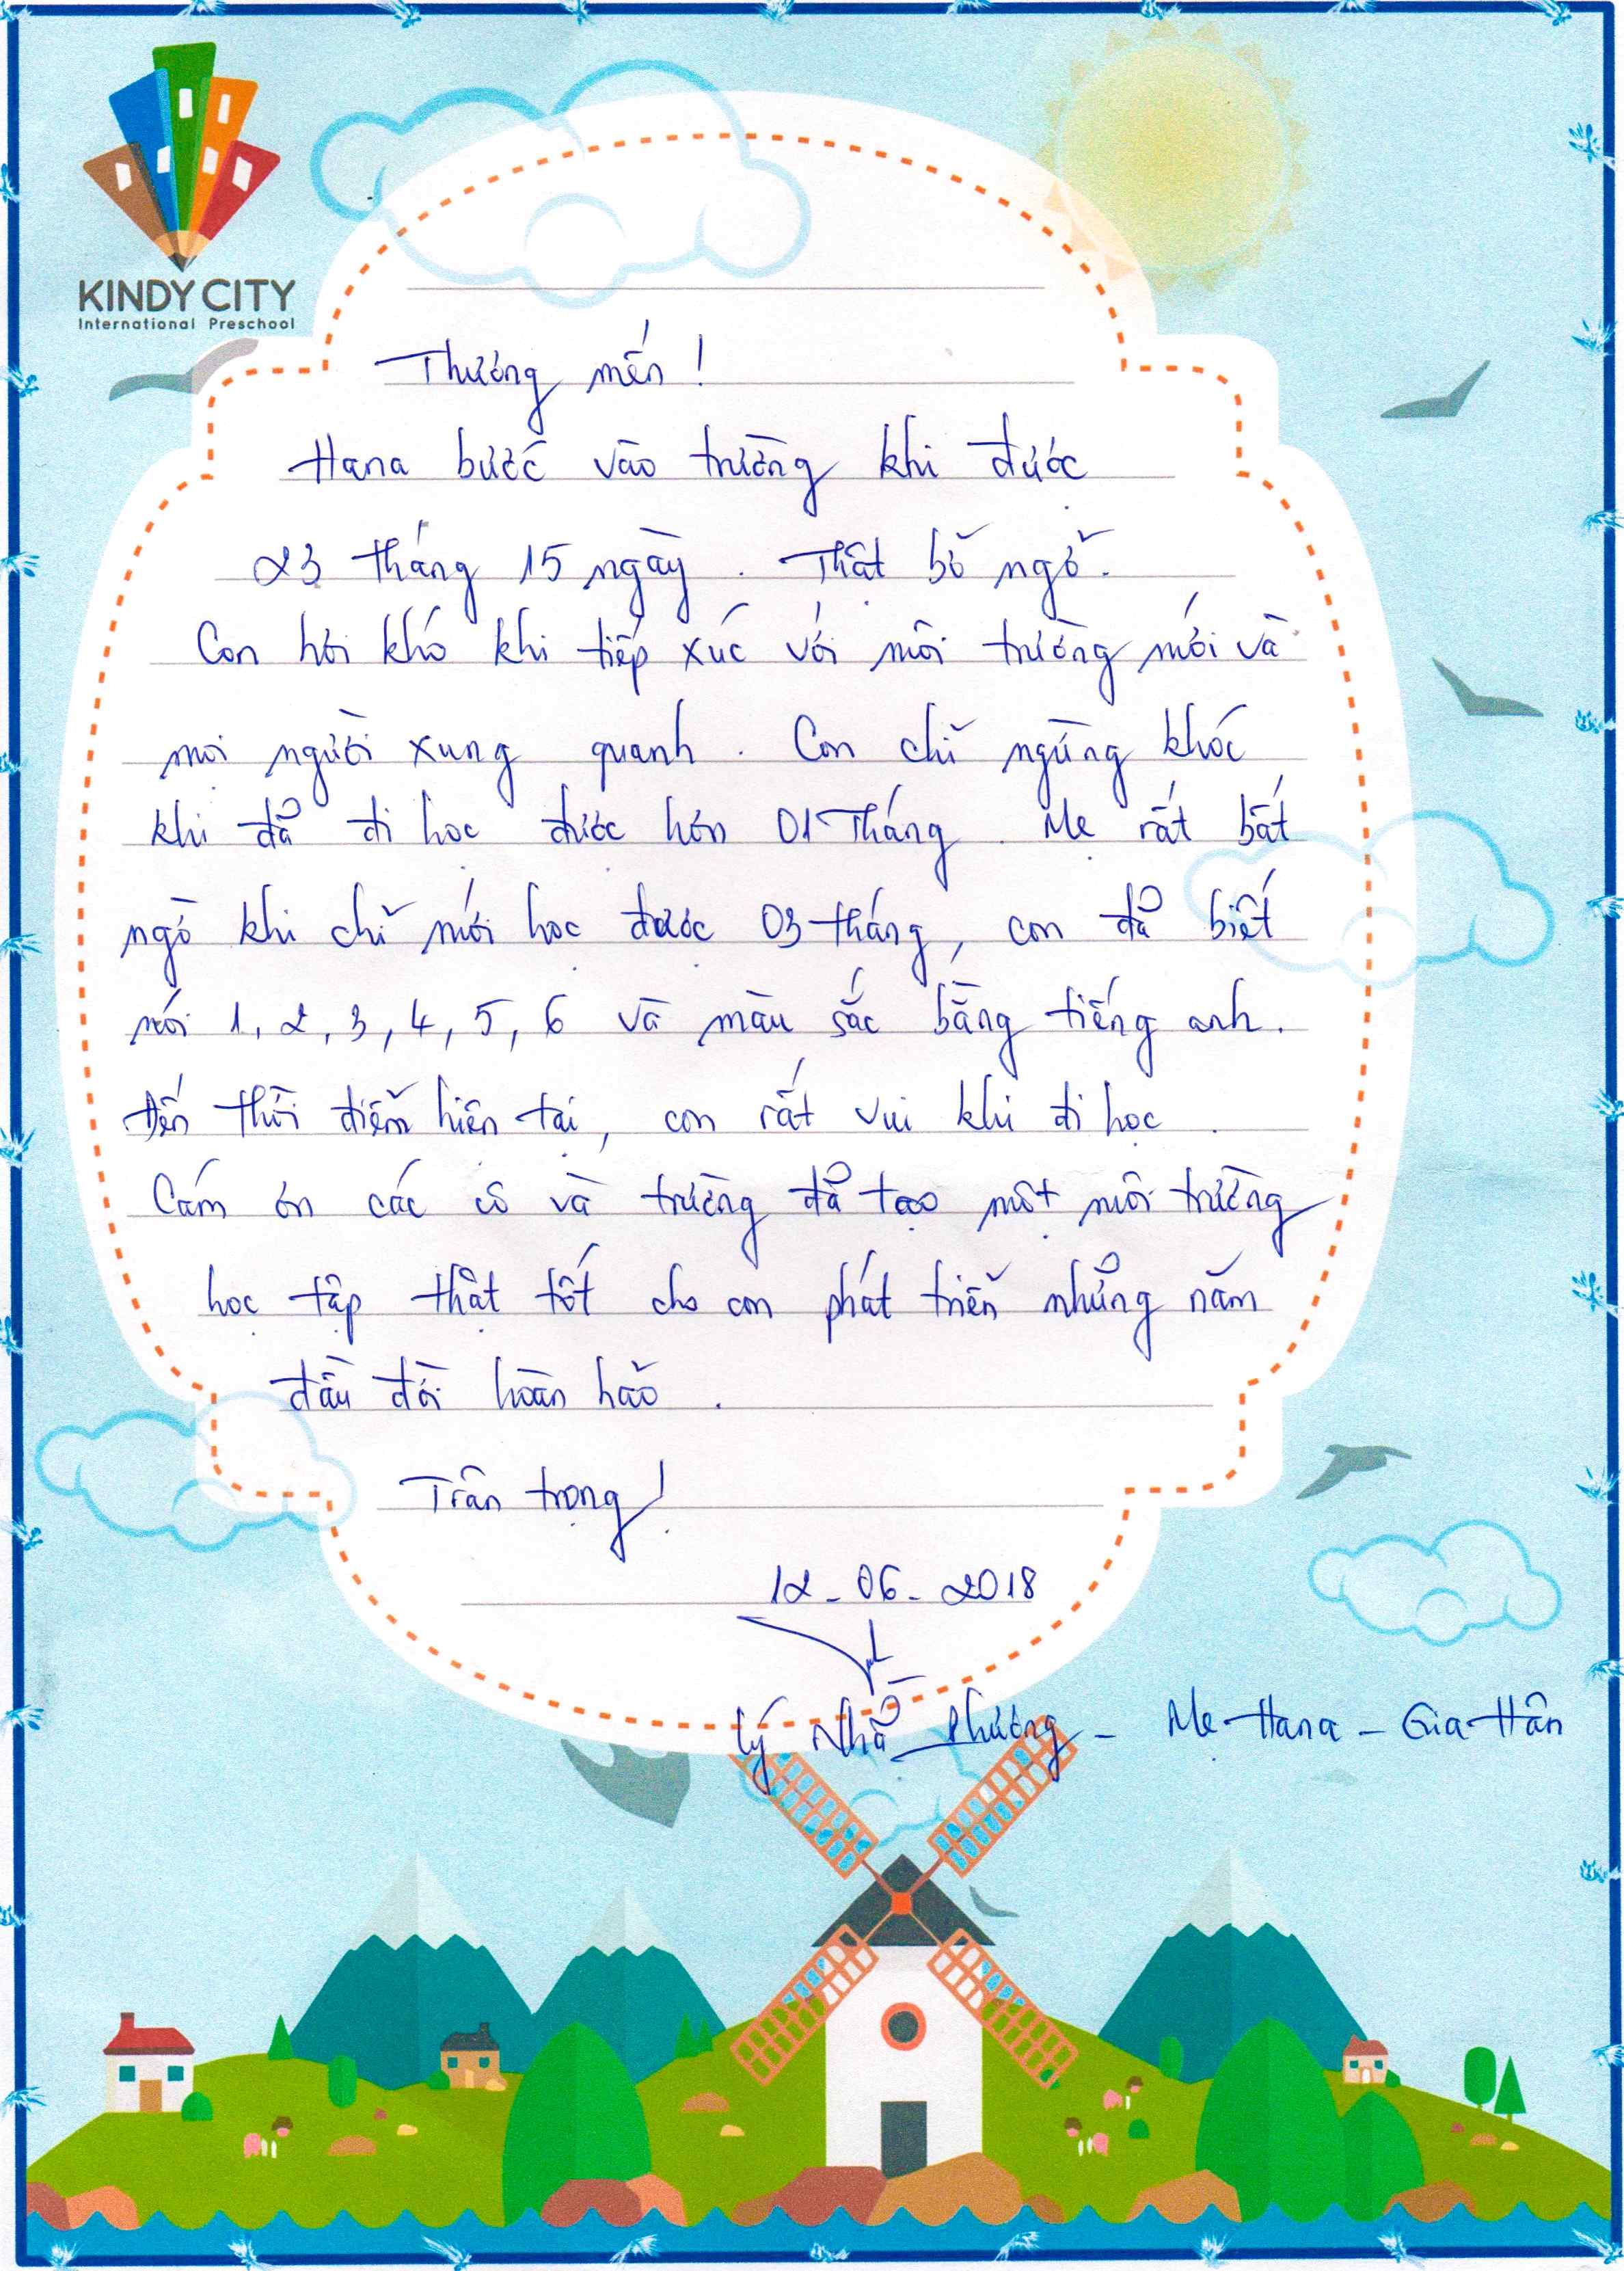 KINDY CITY
International Preschool
Thương mến !
Hana bước vào trường khi được
23 tháng 15 ngày . Thật bỡ ngỡ.
Con hơi khó khi tiếp xúc với môi trường mới và
mọi người xung quanh . Con chỉ ngừng khóc
khi đã đi học được hơn 01 tháng . Mẹ rất bất
ngờ khi chỉ mới học được 03 tháng, con đã biết
nói 1, 2, 3, 4, 5, 6 và màu sắc bằng tiếng anh.
Đến thời điểm hiện tại, con rất vui khi đi học .
Cám ơn các cô và trường đã tạo một môi trường
học tập thật tốt cho con phát triển những năm
đầu đời hoàn hảo .
Trân trọng !
12 - 06 - 2018
Lý Nhã Phương - Mẹ Hana - Gia Hân